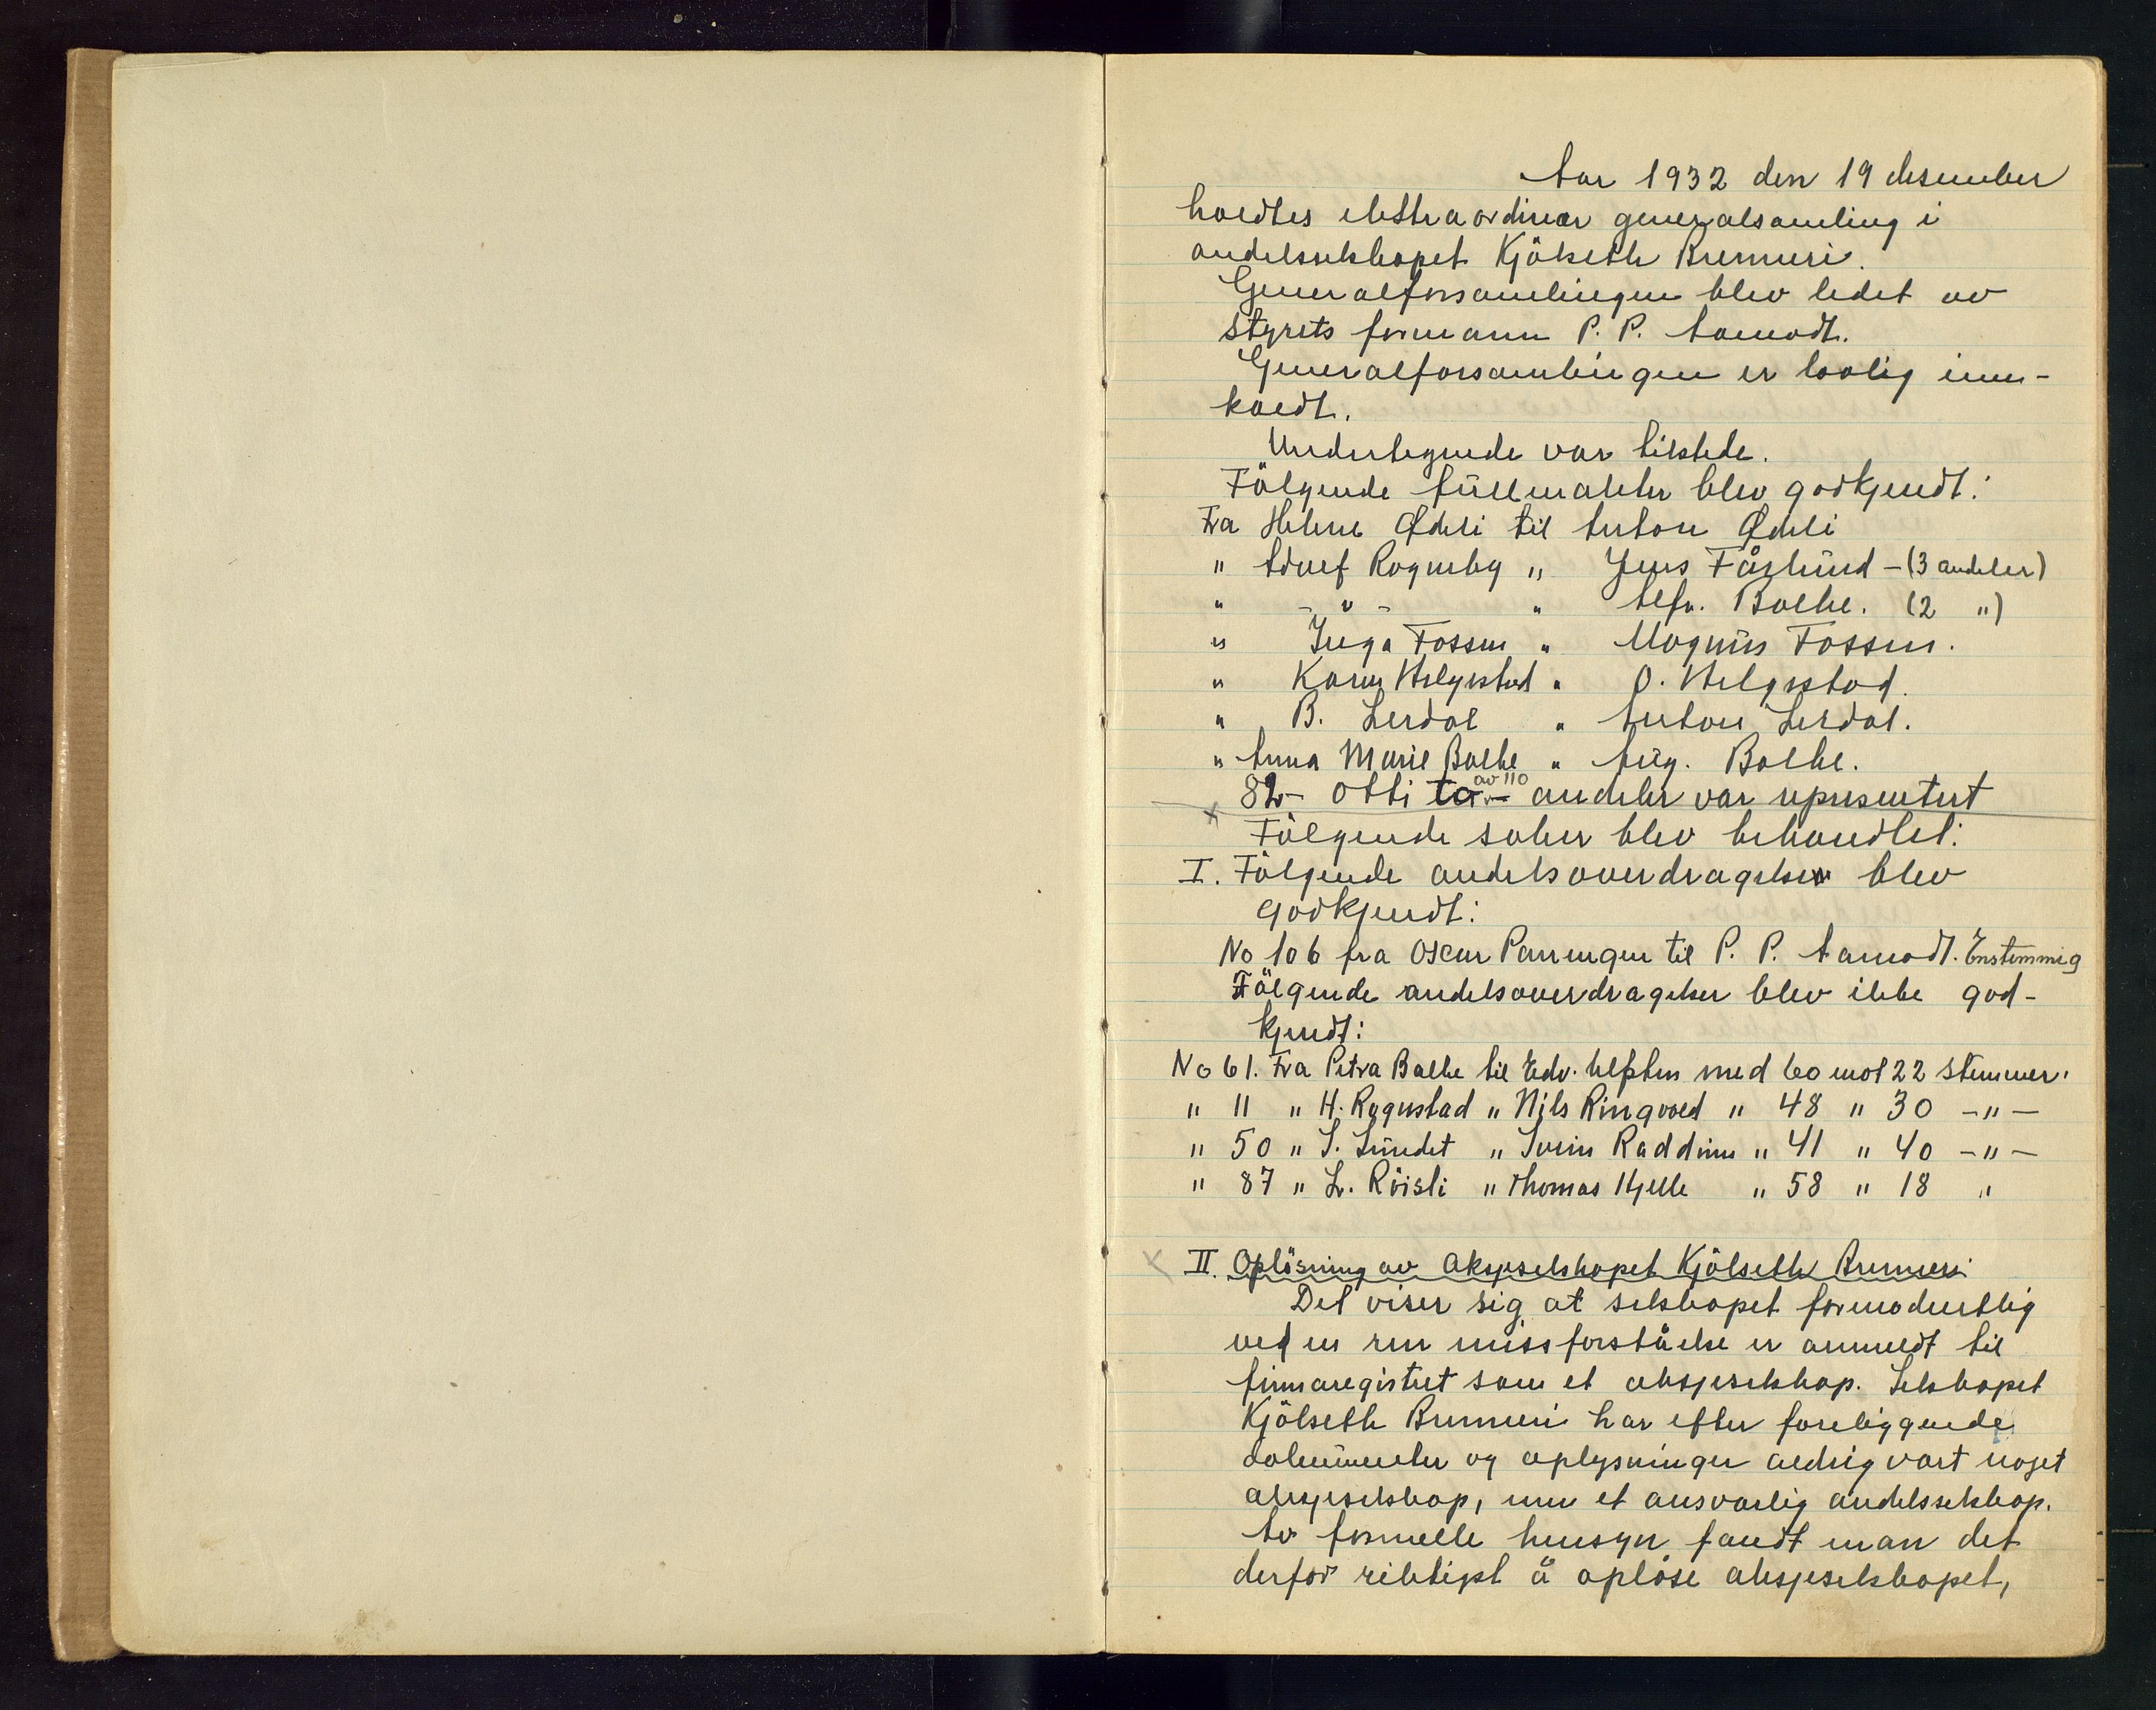 Aar 1932 den 19 desember
holdtes ekstraordinær generalsamling i
andelsselskapet Kjölseth Brenneri.
Generalforsamlingen blev ledet av
styrets formann P. P. Aamodt.
Generalforsamlingen er lovlig inn-
kaldt.
Undertegnede var tilstede.
Fölgende fullmakter blev godkjendt:
Fra Helene Ødeli til Anton Ødeli
" Adolf Rognsby " Jens Fårlund - (3 andeler)
" - " - " Alfr. Bakke. (2 ")
" Inga Fossen " Magnus Fossen.
" Karen Helgestad " O. Helgestad.
" B. Lerdal " Anton Lerdal.
" Anna Marie Bakke " Aug. Bakke.
82 - otti to - av 110 andeler var representert
x Fölgende saker blev behandlet:
I. Fölgende andelsoverdragelser blev
godkjendt:
No 106 fra Oscar Parnengen til P. P. Aamodt. Enstemmig
Fölgende andelsoverdragelser blev ikke god-
kjendt:
No 61. Fra Petra Bakke til Edv. med 60 mot 22 stemmer.
" 11 " H. Rognstad " Nils Ringvold " 48 " 30 - " -
" 50 " S. Lundet " Svein Raddum " 41 " 40 - " -
" 87 " L. Röisli " Thomas Hjelle " 58 " 18 "
x II. Oplösning av Aksjeselskapet Kjölseth Brenneri.
Det viser sig at selskapet formodentlig
ved en ren missforståelse er anmeldt til
firmaregistret som et aksjeselskap. Selskapet
Kjölseth Brenneri har efter foreliggende
dokumenter og oplysninger aldrig vært noget
aksjeselskap, men et ansvarlig andelsselskap.
Av formelle hensyn fandt man det
derfor riktigst å oplöse aksjeselskapet,